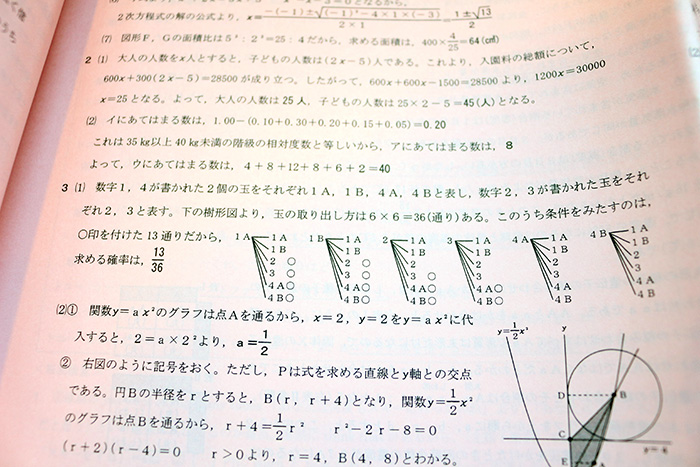 2次方程式の解の公式より，x=−(−1)±√(−1)²−4×1×(−3)/2×1=1±√13/2
(7) 図形F，Gの面積比は5²：2²=25：4だから，求める面積は，400×4/25=64(cm²)
2 (1) 大人の人数をx人とすると，子どもの人数は(2x−5)人である。これより，入園料の総額について，
600x+300(2x−5)=28500が成り立つ。したがって，600x+600x−1500=28500より，1200x=30000
x=25となる。よって，大人の人数は25人，子どもの人数は25×2−5=45(人)となる。
(2) イにあてはまる数は，1.00−(0.10+0.30+0.20+0.15+0.05)=0.20
これは35kg以上40kg未満の階級の相対度数と等しいから，アにあてはまる数は，8
よって，ウにあてはまる数は，4+8+12+8+6+2=40
3 (1) 数字1，4が書かれた2個の玉をそれぞれ1A，1B，4A，4Bと表し，数字2，3が書かれた玉をそれ
ぞれ2，3と表す。下の樹形図より，玉の取り出し方は6×6=36(通り)ある。このうち条件をみたすのは，
○印を付けた13通りだから，
求める確率は，13/36
1A 1A 1B 2○ 3○ 4A○ 4B○
1B 1A 1B 2○ 3○ 4A○ 4B○
2 1A 1B 2 3○ 4A○ 4B○
3 1A 1B 2 3 4A○ 4B○
4A 1A 1B 2 3 4A 4B
4B 1A 1B 2 3 4A 4B
(2)① 関数y=ax²のグラフは点Aを通るから，x=2，y=2をy=ax²に代
入すると，2=a×2²より，a=1/2
② 右図のように記号をおく。ただし，Pは式を求める直線とy軸との交点
である。円Bの半径をrとすると，B(r，r+4)となり，関数y=1/2x²
のグラフは点Bを通るから，r+4=1/2r² r²−2r−8=0
(r+2)(r−4)=0 r>0より，r=4，B(4，8)とわかる。
y=1/2x²
y
D
B
C
E